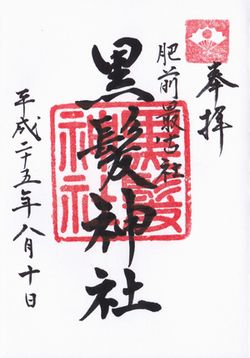 奉拝
肥前最古社
黒髪神社
黒髪神社
平成二十五年八月十日